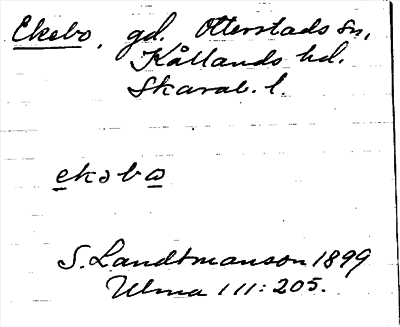 Ekebo, gd. Otterstads sn,
Kållands hd.
Skarab. l.
ekəbo
S. Landtmanson 1899
Ulma 111:205.